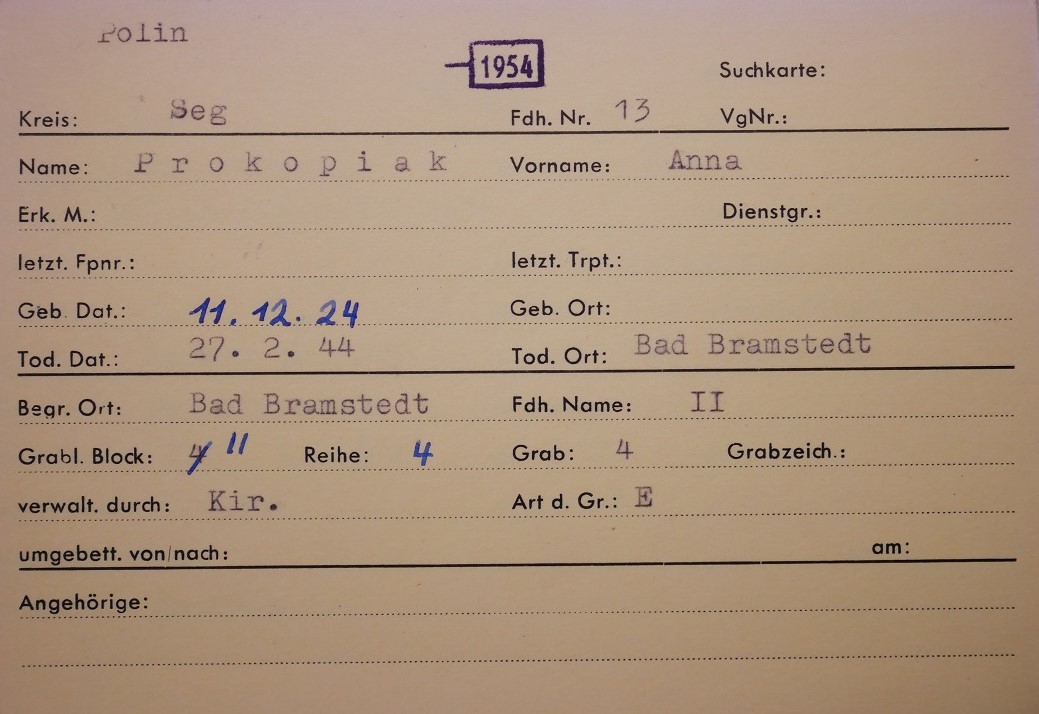 Polin
1954
Suchkarte:
Kreis: Seg Fdh. Nr. 13 VgNr.:
Name: Prokopiak Vorname: Anna
Erk. M.: Dienstgr.:
letzt. Fpnr.: letzt. Trpt.:
Geb. Dat.: 11. 12. 24 Geb. Ort:
Tod. Dat.: 27. 2. 44 Tod. Ort: Bad Bramstedt
Begr. Ort: Bad Bramstedt Fdh. Name: II
Grabl. Block: 4 II Reihe: 4 Grab: 4 Grabzeich.:
verwalt. durch: Kir. Art d. Gr.: E
umgebett. von/nach: am:
Angehörige: